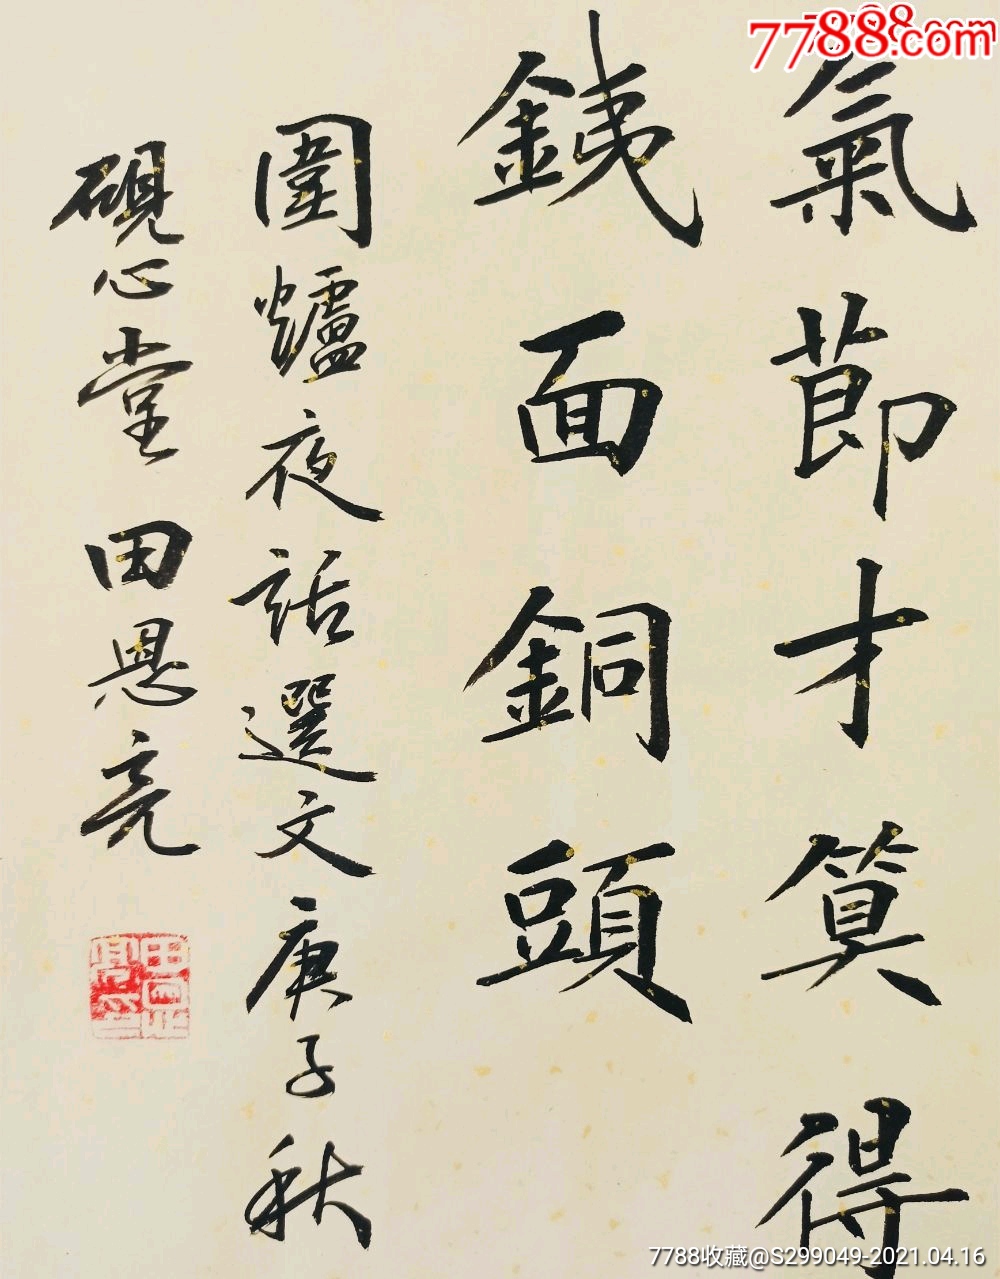 7788.com
7788.com
氣節才算得
銕面銅頭
圍爐夜話選文庚子秋
硯心堂田恩亮
田恩亮印
7788收藏@S299049-2021.04.16